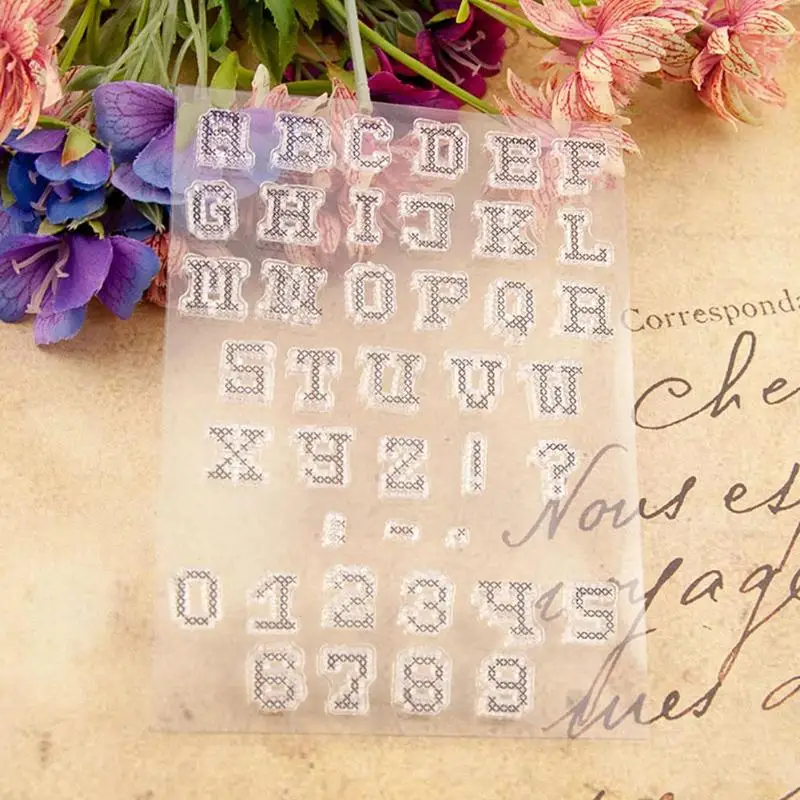 A B C D E F
G H I J K L
M N O P Q R
S T U V W
X Y Z ! ?
: - .
0 1 2 3 4 5
6 7 8 9
Corresponda
Che
Nous es
voyage